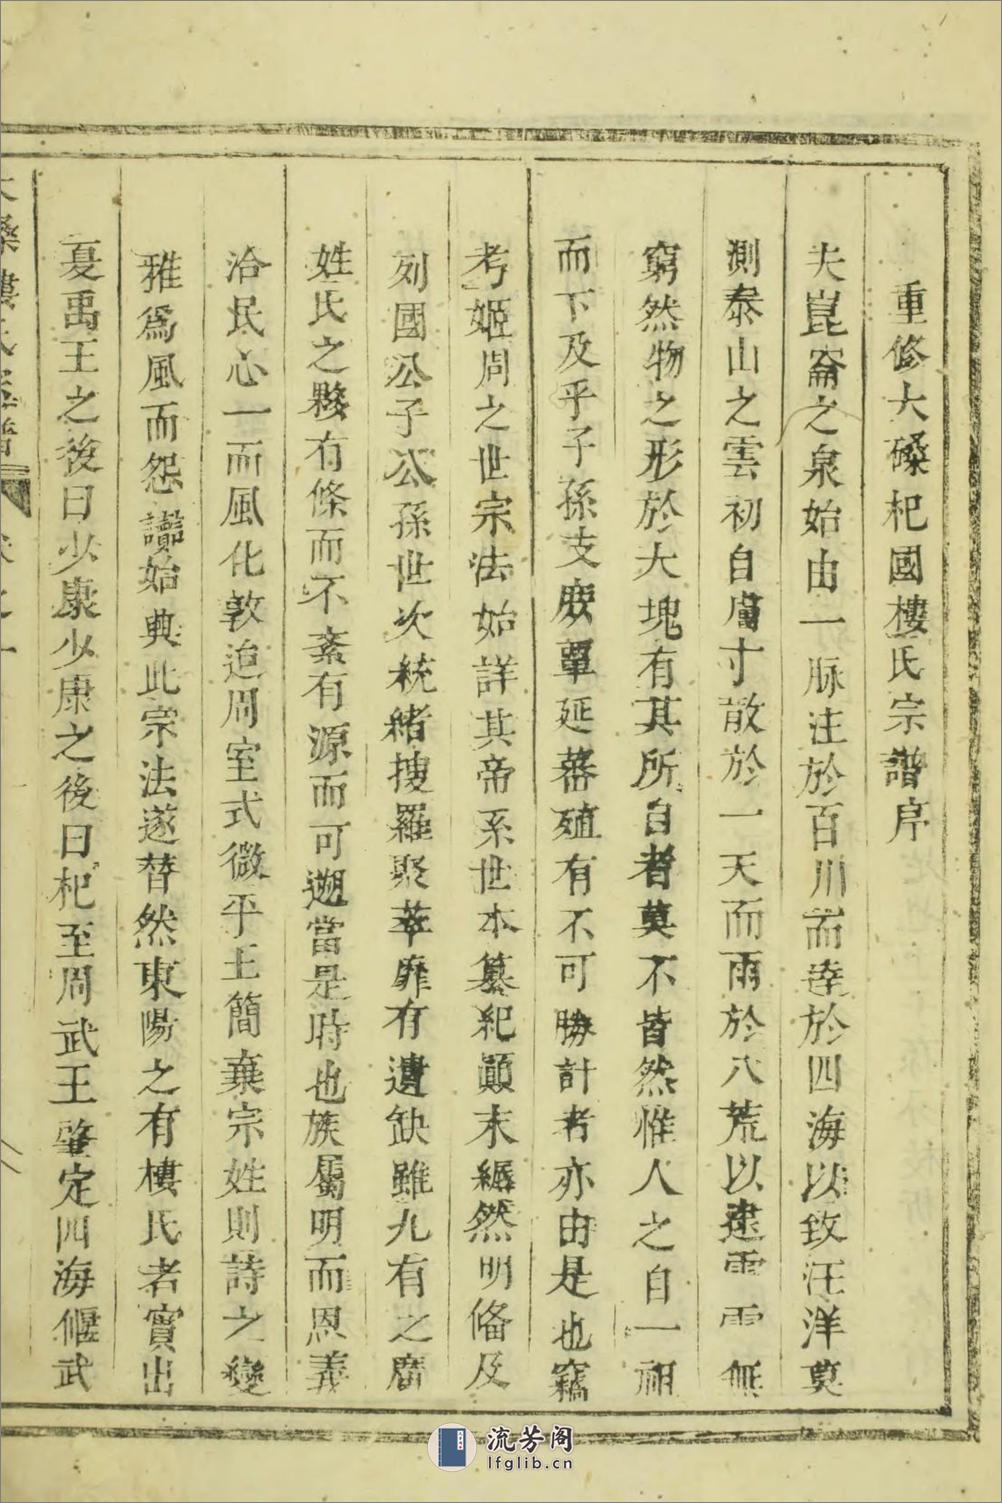 重修大磉杞國樓氏宗譜序
夫崑崙之泉始由一脉注於百川而達於四海以致汪洋莫
測泰山之雲初自膚寸散於一天而雨於八荒以逮雨無
窮然物之形於大塊有其所自者莫不皆然惟人之自一祖
而下及乎子孫支庶覃延蕃殖有不可勝計者亦由是也竊
考姬周之世宗法始詳其帝系世本纂紀顚末縟然明俻及
列國公子公孫世次統緒搜羅聚萃靡有遺缺雖九有之廣
姓氏之夥有條而不紊有源而可遡當是時也族屬明而恩義
洽民心一而風化敦迨周室式微平王簡棄宗姓則詩之變
雅爲風而怨讟始興此宗法遂替然東陽之有樓氏者實出
夏禹王之後曰少康少康之後曰杞至周武王肇定四海偃武
大磉樓氏宗譜 卷之一
流芳阁
lfglib.cn